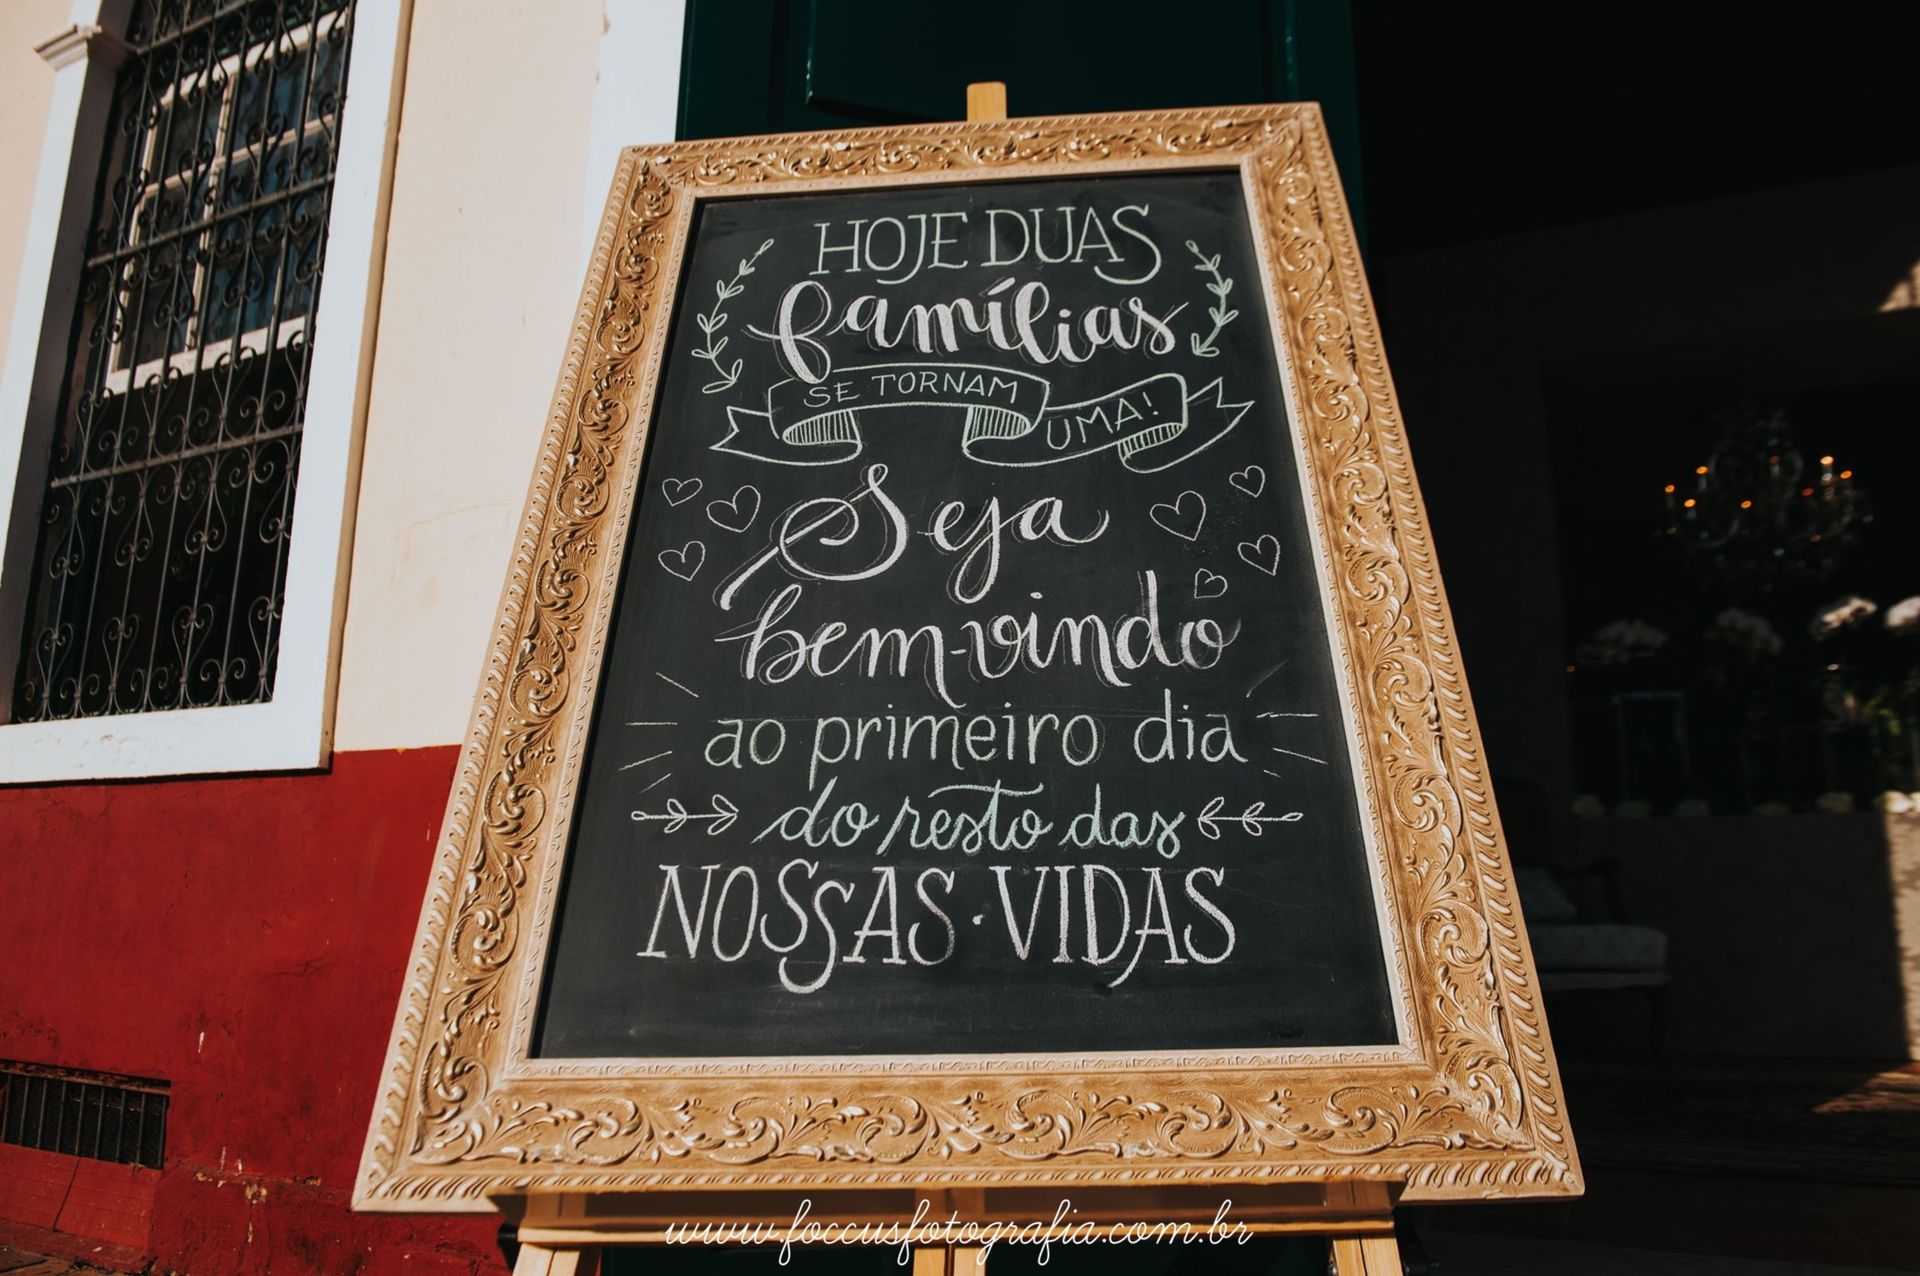 HOJE DUAS
famílias
SE TORNAM
UMA!
Seja
bem-vindo
ao primeiro dia
do resto das
NOSSAS · VIDAS
www.foccusfotografia.com.br